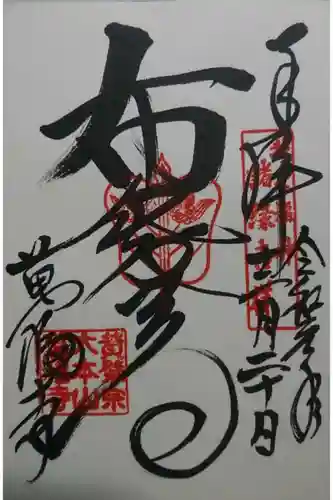 奉拝
令和元年
十二月二十日
布袋尊
萬福寺
黄檗宗
大本山
萬福寺